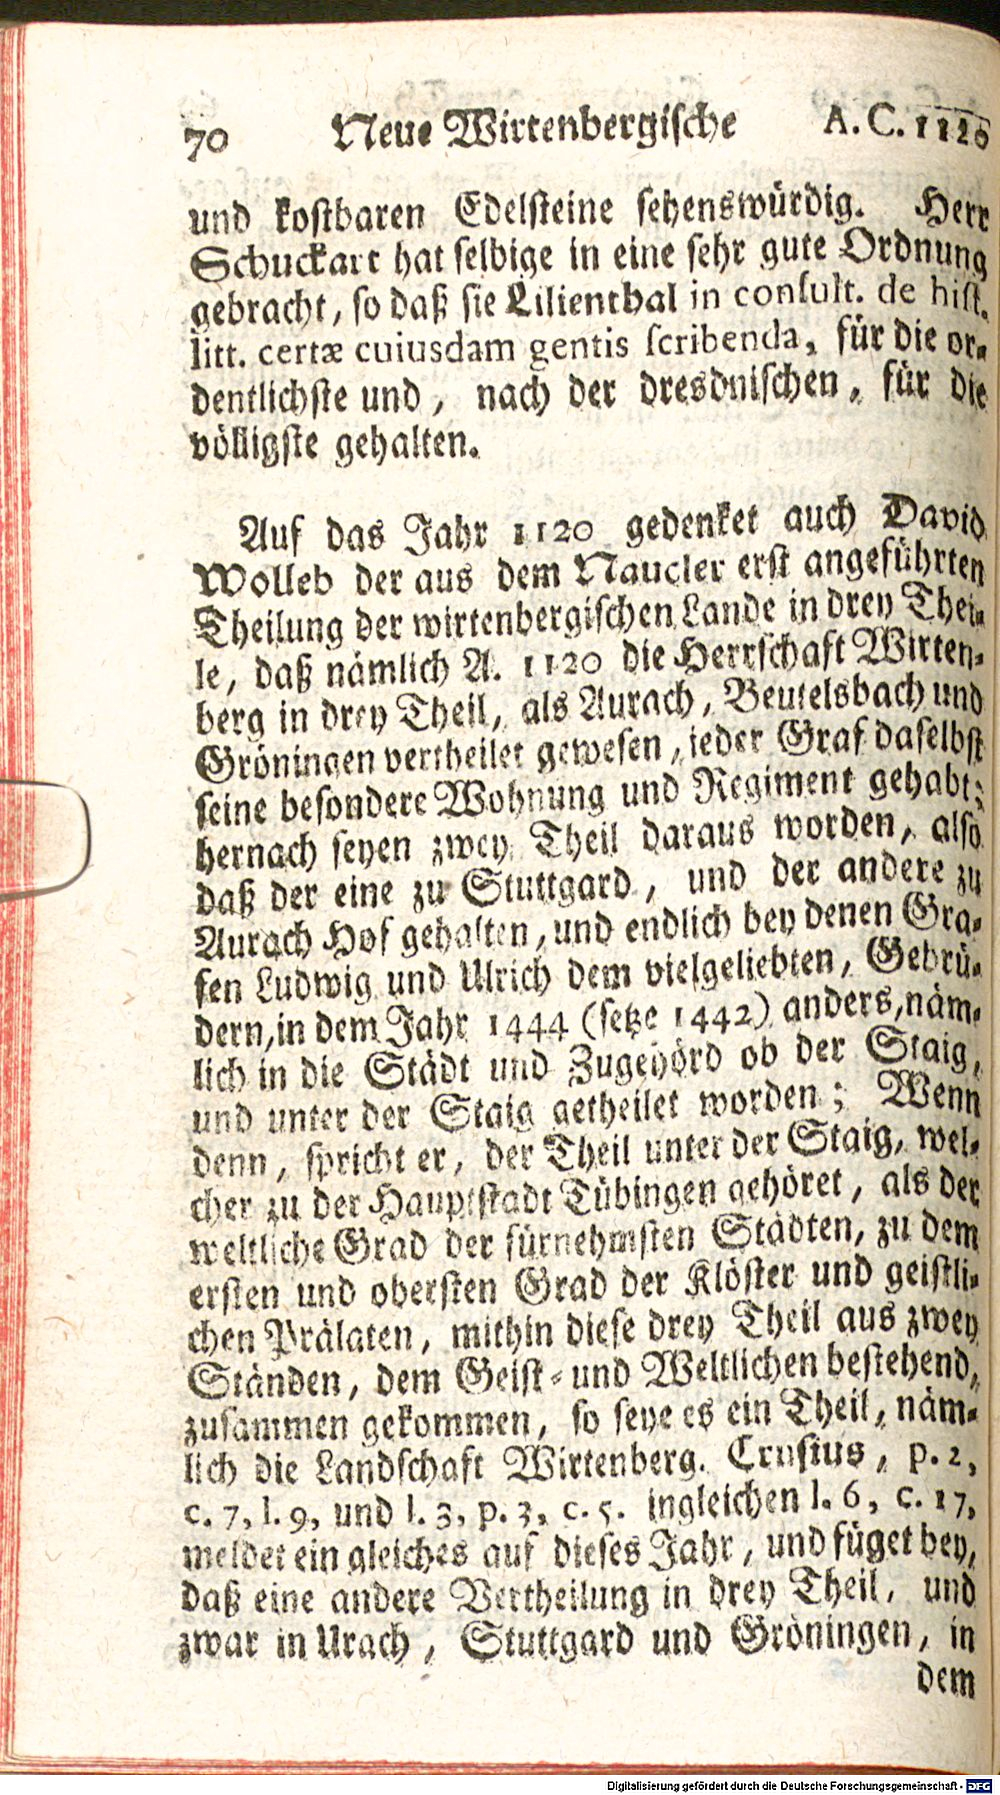 70 Neue Wirtenbergische A. C. 1120
und kostbaren Edelsteine sehenswürdig. Herr
Schuckart hat selbige in eine sehr gute Ordnung
gebracht, so daß sie Lilienthal in consult. de hist.
litt. certæ cuiusdam gentis scribenda, für die or-
dentlichste und, nach der dresdnischen, für die
völligste gehalten.
Auf das Jahr 1120 gedenket auch David
Wolleb der aus dem Naucler erst angeführten
Theilung der wirtenbergischen Lande in drey Thei-
le, daß nämlich A. 1120 die Herrschaft Wirten-
berg in drey Theil, als Aurach, Beutelsbach und
Gröningen vertheilet gewesen, ieder Graf daselbst
seine besondere Wohnung und Regiment gehabt;
hernach seyen zwey Theil daraus worden, also
daß der eine zu Stuttgard, und der andere zu
Aurach Hof gehalten, und endlich bey denen Gra-
fen Ludwig und Ulrich dem vielgeliebten, Gebrü-
dern, in dem Jahr 1444 (setze 1442) anders, näm-
lich in die Städt und Zugehörd ob der Staig,
und unter der Staig getheilet worden; Wenn
denn, spricht er, der Theil unter der Staig, wel-
cher zu der Hauptstadt Tübingen gehöret, als der
weltliche Grad der fürnehmsten Städten, zu dem
ersten und obersten Grad der Klöster und geistli-
chen Prälaten, mithin diese drey Theil aus zwey
Ständen, dem Geist- und Weltlichen bestehend,
zusammen gekommen, so seye es ein Theil, näm-
lich die Landschaft Wirtenberg. Crusius, p. 2,
c. 7, l. 9, und l. 3, p. 3, c. 5. ingleichen l. 6, c. 17,
meldet ein gleiches auf dieses Jahr, und füget bey,
daß eine andere Vertheilung in drey Theil, und
zwar in Urach, Stuttgard und Gröningen, in
dem
Digitalisierung gefördert durch die Deutsche Forschungsgemeinschaft - DFG